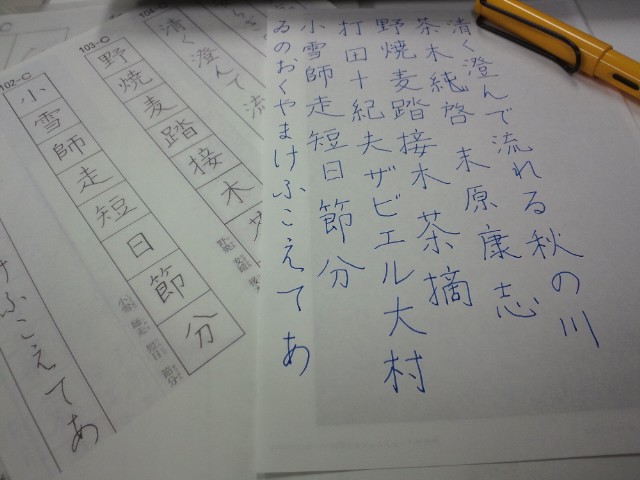 清く澄んで流れる秋の川
茶木純啓 末原康志
野焼麦踏接木 茶摘
打田十紀夫ザビエル大村
小雪師走短日節分
ゐのおくやまけふこえてあ
104-C
清く澄んで流
103-C
野焼麦踏接木
102-C
小雪師走短日節分
けふこえてあ